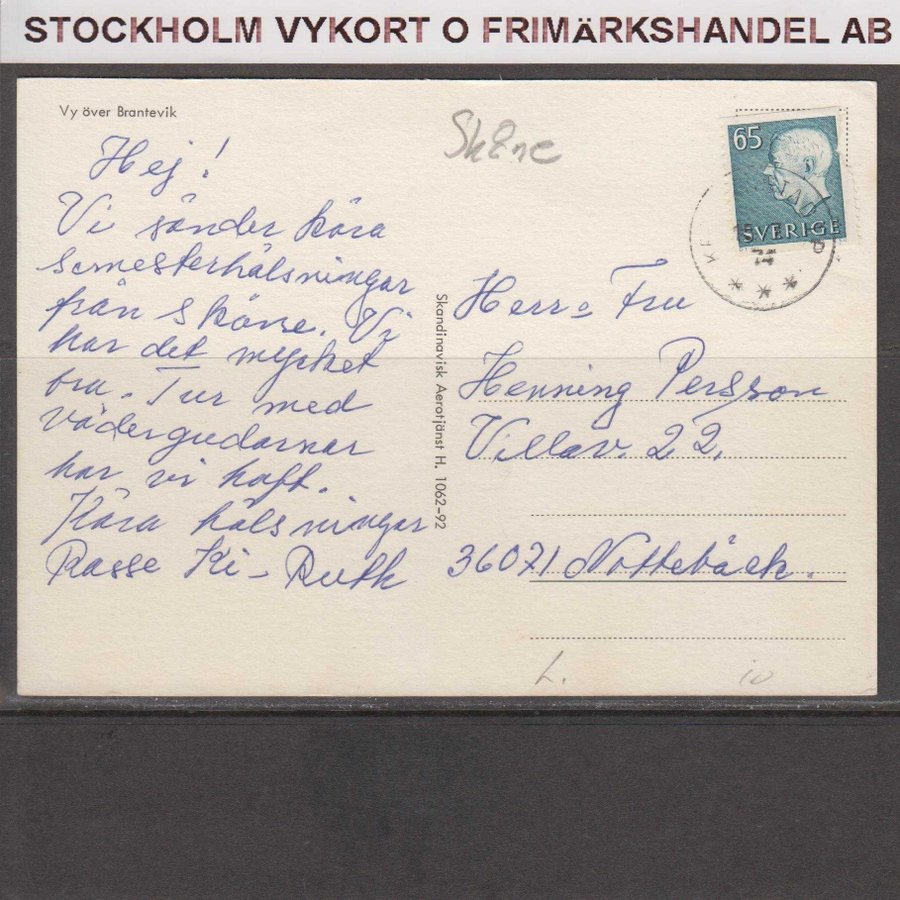 STOCKHOLM VYKORT O FRIMÄRKSHANDEL AB
Vy över Brantevik
Skåne
Hej!
Vi sänder kära
semesterhälsningar
från Skåne. Vi
har det mycket
bra. Tur med
vädergudarnar
har vi haft.
Kära hälsningar
Rasse Ki - Ruth
Skandinavisk Aerotjänst H. 1062-92
65
SVERIGE
74
Herr o Fru
Henning Persson
Villav. 22.
36071 Nottebäck.
L.
10